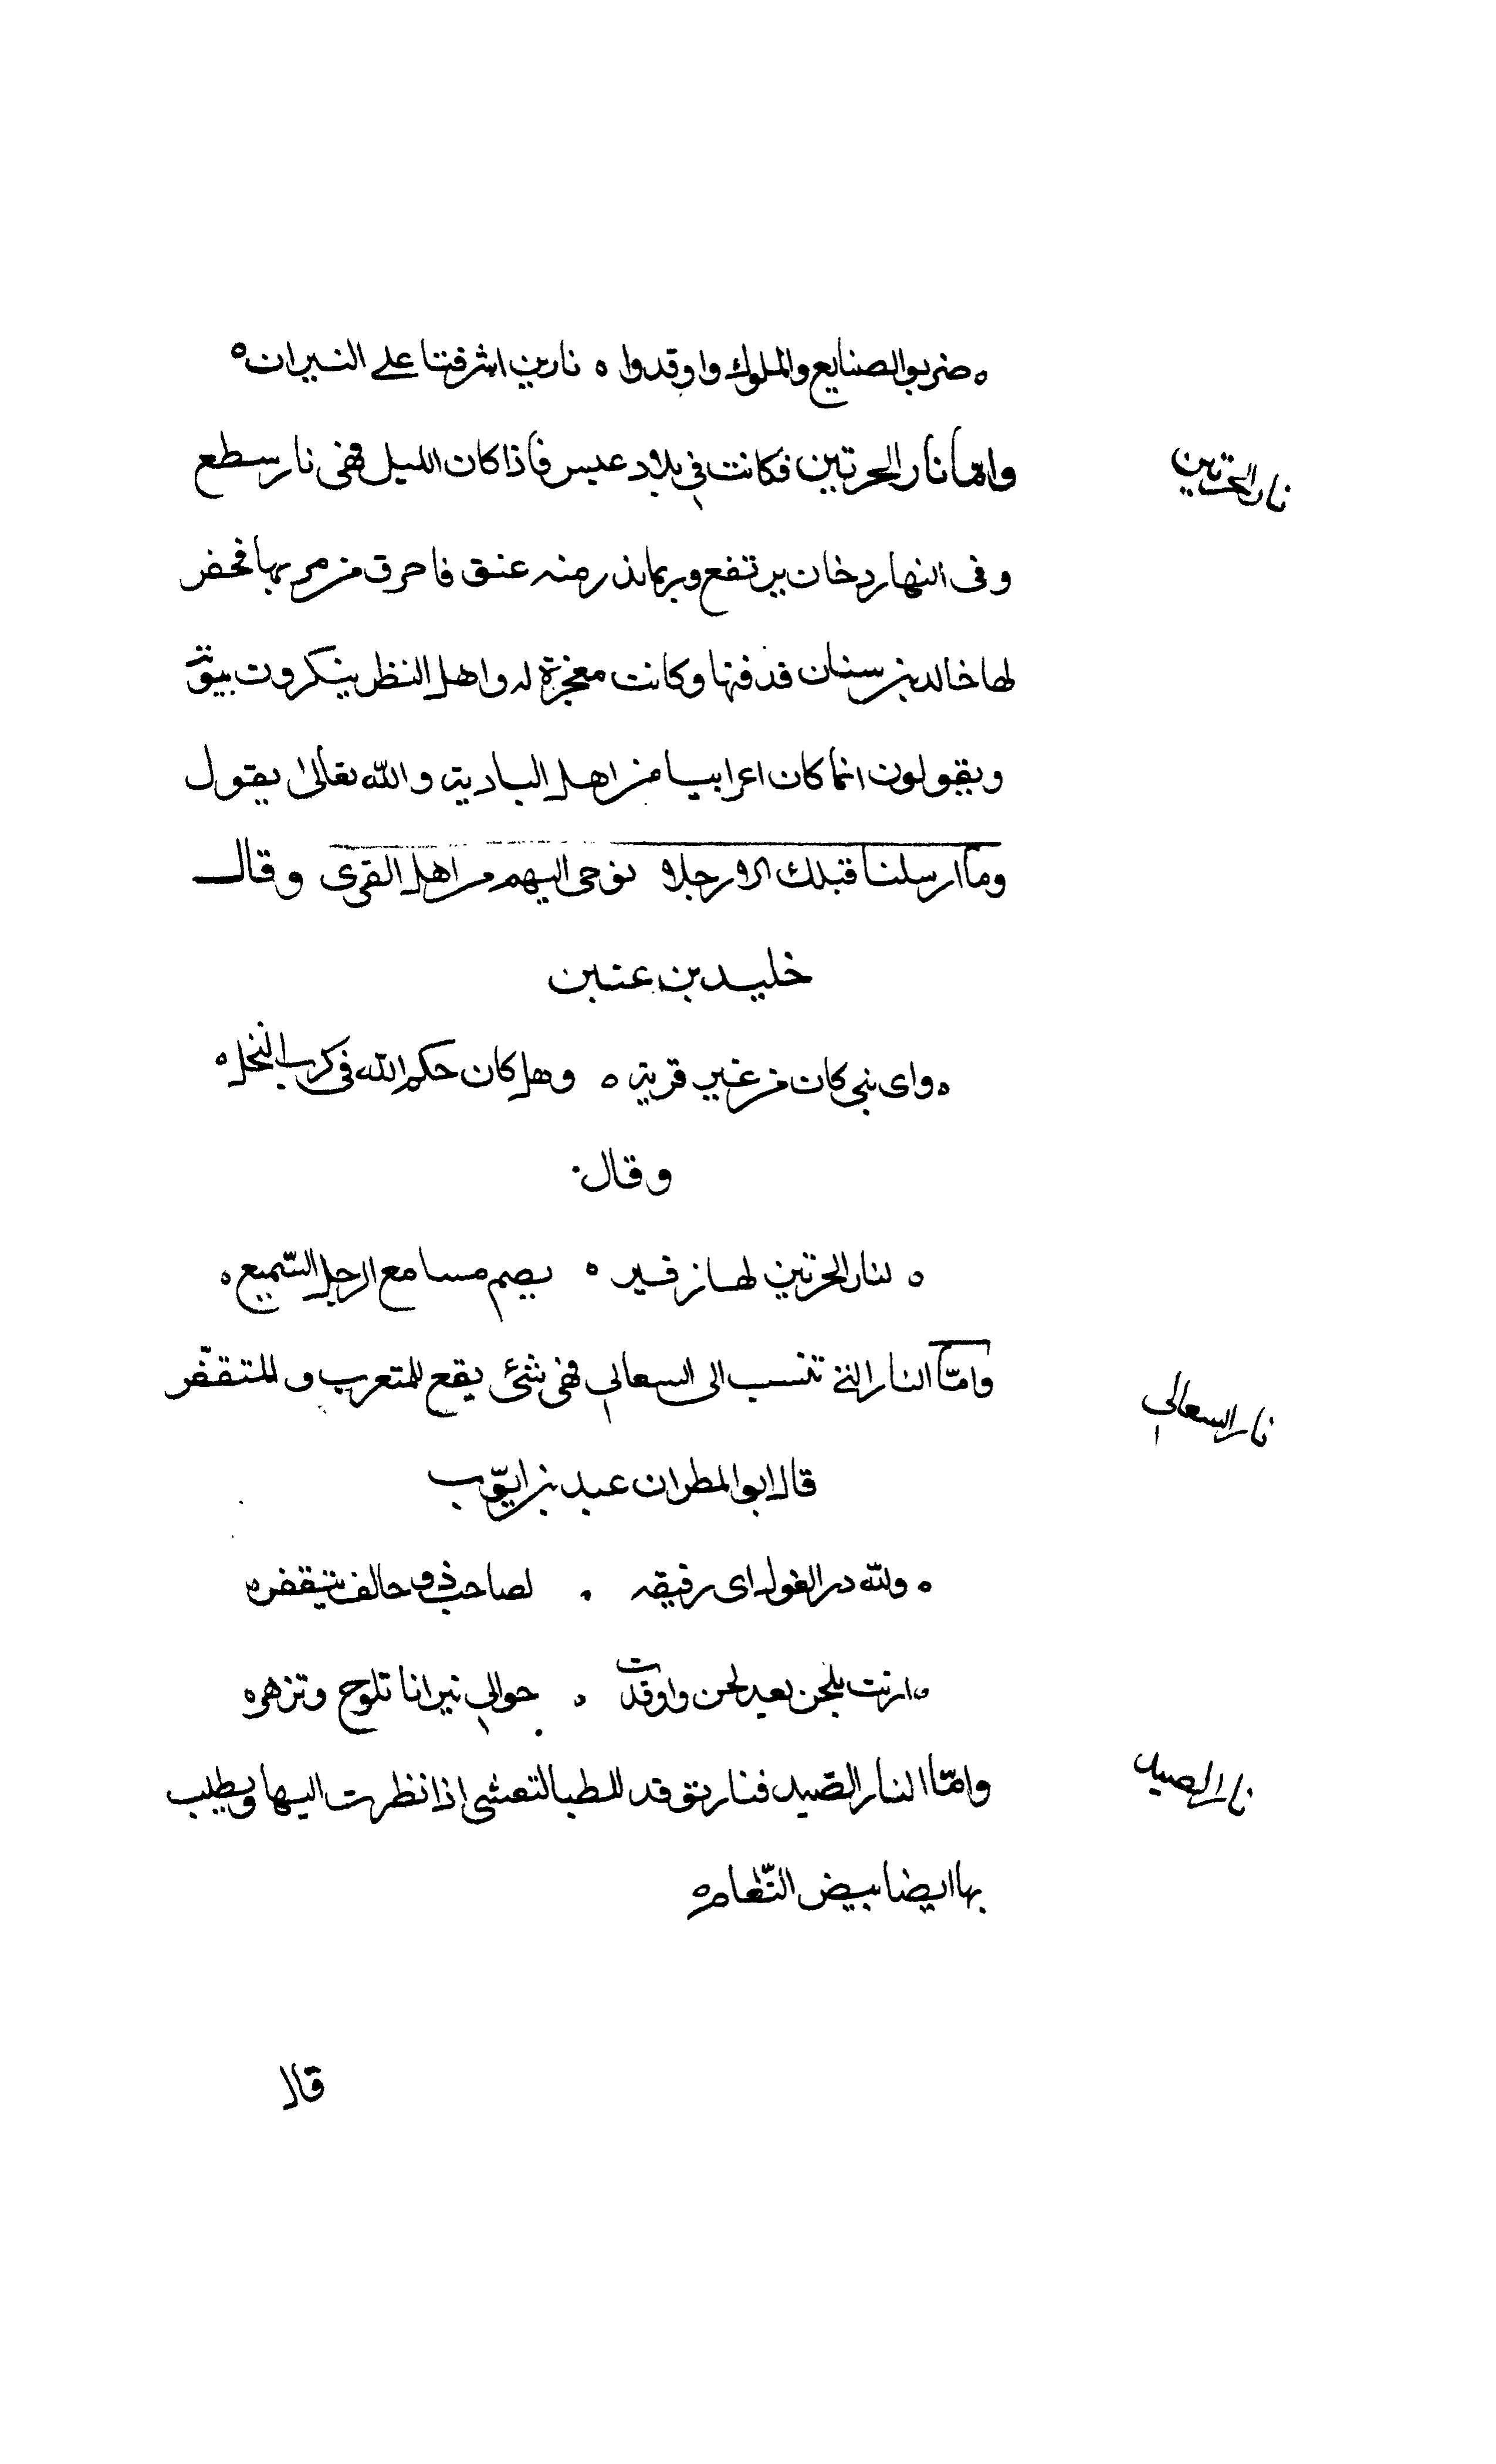 ضربوا الصنايع والملوك واوقدوا ه نارين اشرفتا على النيران ه
نار الحرتين
وامّا نار الحرتين فكانت في بلاد عبس فاذا كان الليل فهى نار سطع
وفى النهار دخان يرتفع وربما نذر منه عنق فاحرق من مر بها فحفر
لها خالد بن سنان فدفنها وكانت معجزة له واهل النظر ينكرون
ويقولون انما كان اعرابيا من اهل البادية والله تعالىٰ يقول
وما ارسلنا قبلك الا رجلا نوحى اليهم من اهل القرى وقال
خليد بن عنبن
ه واى نبى كان من غير قرية ه وهل كان حكم الله فى كرب النخل ه
وقال
ه لنار الحرتين لها زفير ه يصم مسامع الرجل السّميع ه
نار السعالي
وامّا النار التى تنسب الى السعالي فهى شئ يقع للمتعرب و للمتقفّر
قال ابو المطران عبيد بن ايّوب
ه ولله در الغول اى رفيقه . لصاحب ذو حالف يتقفر ه
ه ارنت بلحن بعد لحن واوقدت . حوالي نيرانا تلوح وتزهر ه
نار الصيد
وامّا النار الصّيد فنار توقد للظبا لتعشى اذا نظرت اليها ويطلب
بها ايضا بيض النّعام ه
قال